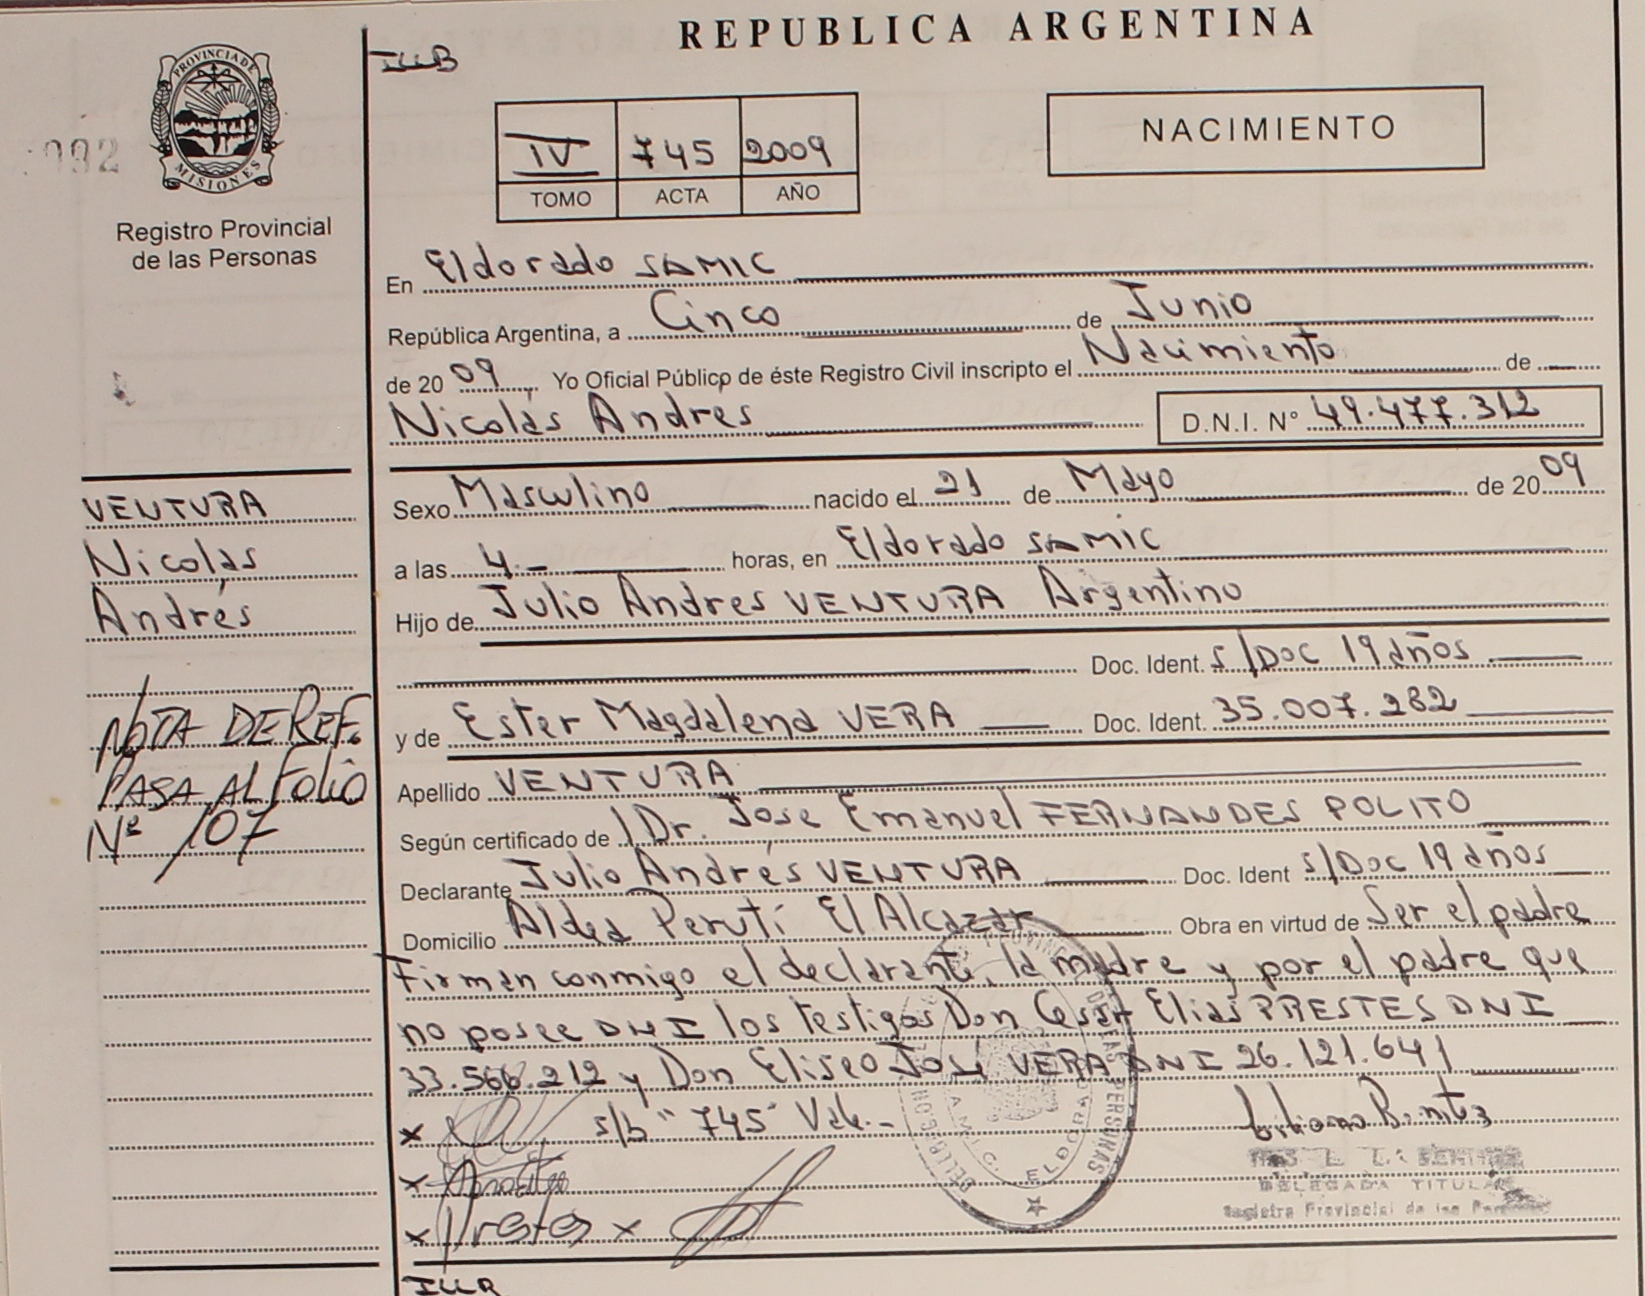 REPUBLICA ARGENTINA
ILLB
PROVINCIA DE
MISIONES
092
Registro Provincial
de las Personas
IV 745 2009
TOMO ACTA AÑO
NACIMIENTO
En Eldorado SAMIC
República Argentina, a Cinco de Junio
de 2009, Yo Oficial Público de éste Registro Civil inscripto el Nacimiento de
Nicolás Andres D.N.I. N° 49.477.312
VENTURA
Nicolás
Andrés
Sexo Masculino nacido el 21 de Mayo de 2009
a las 4.- horas, en Eldorado SAMIC
Hijo de Julio Andres VENTURA Argentino
Doc. Ident. s/Doc 19 años
y de Ester Magdalena VERA Doc. Ident. 35.007.282
NOTA DE REF.
PASA AL FOLIO
Nº 107
Apellido VENTURA
Según certificado de Dr. Jose Emanuel FERNANDES POLITO
Declarante Julio Andrés VENTURA Doc. Ident s/Doc 19 años
Domicilio Aldea Perutí El Alcazar Obra en virtud de Ser el padre
Firman conmigo el declarante, la madre y por el padre que
no posee DNI los testigos Don Cesar Elias PRESTES DNI
33.566.212 y Don Eliseo José VERA DNI 26.121.641
x s/b "745" Vale.- Liliana Benitez
x
x x
DELEGADA TITULAR
Registro Provincial de las Personas
DE LAS PERSONAS
ELDORADO